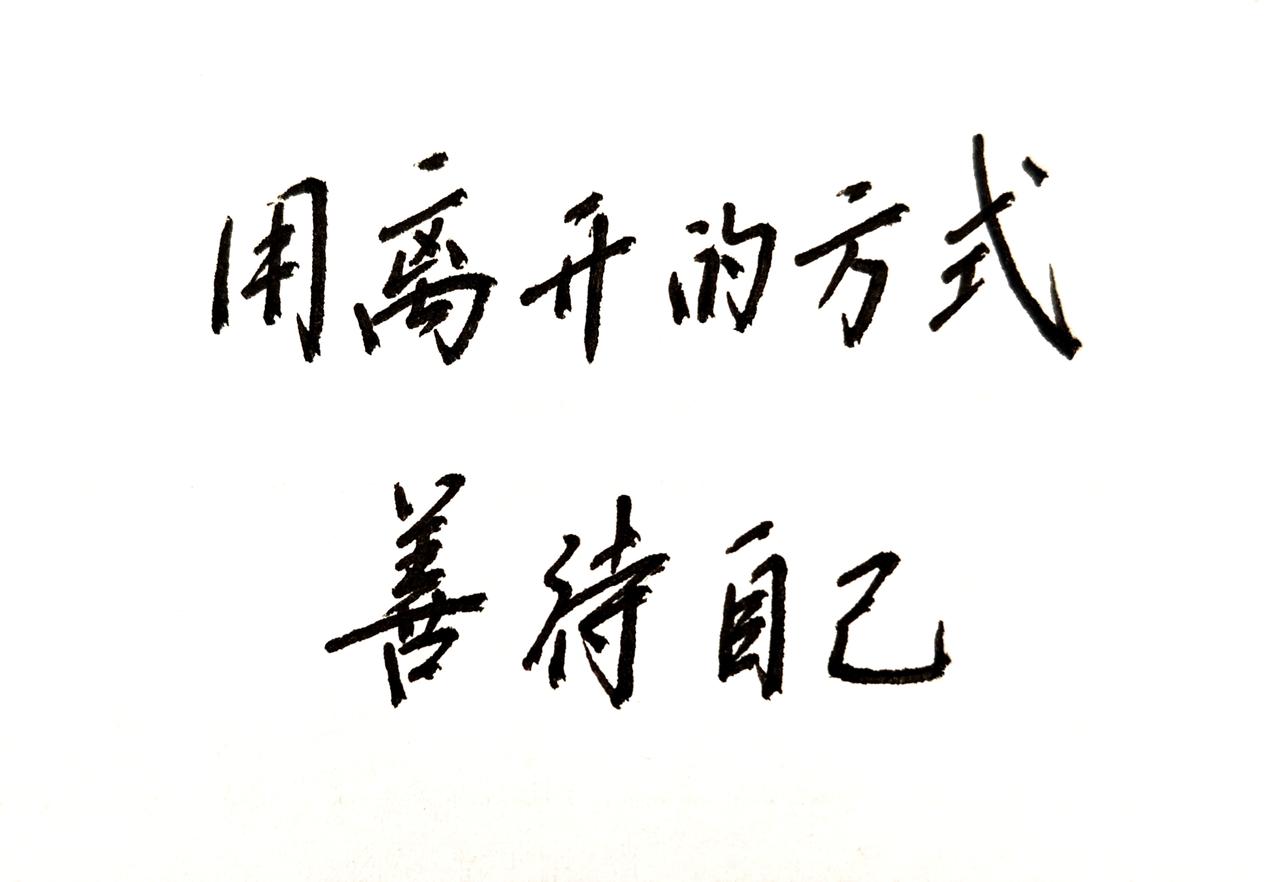 用离开的方式
善待自己